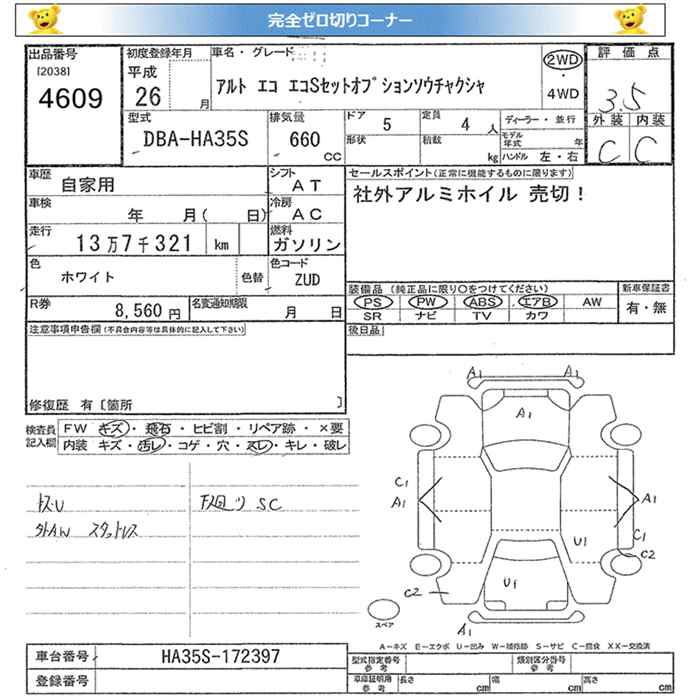 完全ゼロ切りコーナー
出品番号
[2038]
4609
初度登録年月
平成
26 月
車名・グレード
アルト エコ エコSセットオプションソウチャクシャ
2WD
・
4WD
評価点
3.5
外装 内装
C C
型式
DBA-HA35S
排気量
660
CC
ドア
5
形状
定員
4 人
積載
kg
ディーラー・並行
モデル年式 年
ハンドル 左・右
車歴
自家用
シフト
AT
車検
年 月( 日)
冷房
AC
走行
13万7千321 km
燃料
ガソリン
色
ホワイト
色替
色コード
ZUD
R券
8,560 円
名変通知期限
月 日
セールスポイント(正常に機能するものに限ります)
社外アルミホイル 売切!
装備品 (純正品に限り○をつけてください)
PS PW ABS エアB AW
SR ナビ TV カワ
新車保証書
有・無
後日品
注意事項申告欄(不具合内容等は具体的に記入して下さい)
修復歴 有〔箇所 〕
検査員記入欄
FW キズ・飛石・ヒビ割・リペア跡・×要
内装 キズ・汚レ・コゲ・穴・スレ・キレ・破レ
トスレ
外AW スタットレス
下廻り SC
A1 A1
A1
C1
A1
A1
C1
C2
U1
U1
C2
A1
スペア
A-キズ E-エクボ U-凹み W-補修跡 S-サビ C-腐食 XX-交換済
車台番号
HA35S-172397
登録番号
型式指定番号
参考
類別区分番号
参考
車庫証明用
参考
長さ cm
幅 cm
高さ cm